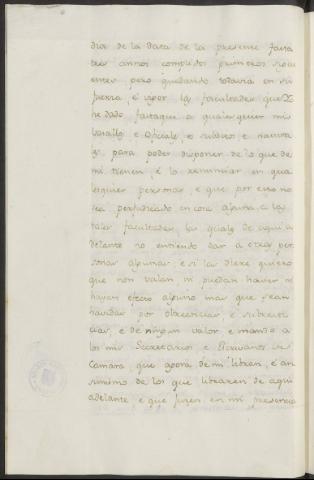 dia de la data de la presente fasta
tres annos complidos primeros siguientes
entes pero quedando todavia en su
fuerza, é vigor las facultades que Yo
he dado fasta que a qualesquier mis
Vasallos e Oficiales e subditos e naturales
para poder disponer de lo que de
mi tienen, é lo renunciar en qualesquier
personas, e que por esso no
sea perjudicado en cosa alguna, a las
tales facultades, las quales de aqui a
delante no entiendo dar á otras personas
algunas, e si las diere quiero
que non valan ni puedan haver ni
hayan efecto alguno mas que sean
havidas por obreticias, e subreticias,
e de ningun valor e mando a
los mis Secretarios e Escrivanos de
Camara que agora de mi libran, é asi
mismo de los que libraren de aqui
adelante e que juren en mi presencia